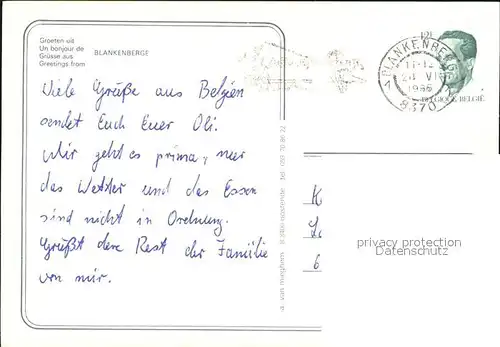 Groeten uit
Un bonjour de
Grüsse aus
Greetings from
BLANKENBERGE
Viele Grüße aus Belgien
sendet Euch Euer Oli.
Mir geht es prima, nur
das Wetter und das Essen
sind nicht in Ordnung.
Grüßt den Rest der Familie
von mir.
BLANKENBERGE
1986
8370
BELGIQUE BELGIË
K
6
privacy protection
Datenschutz